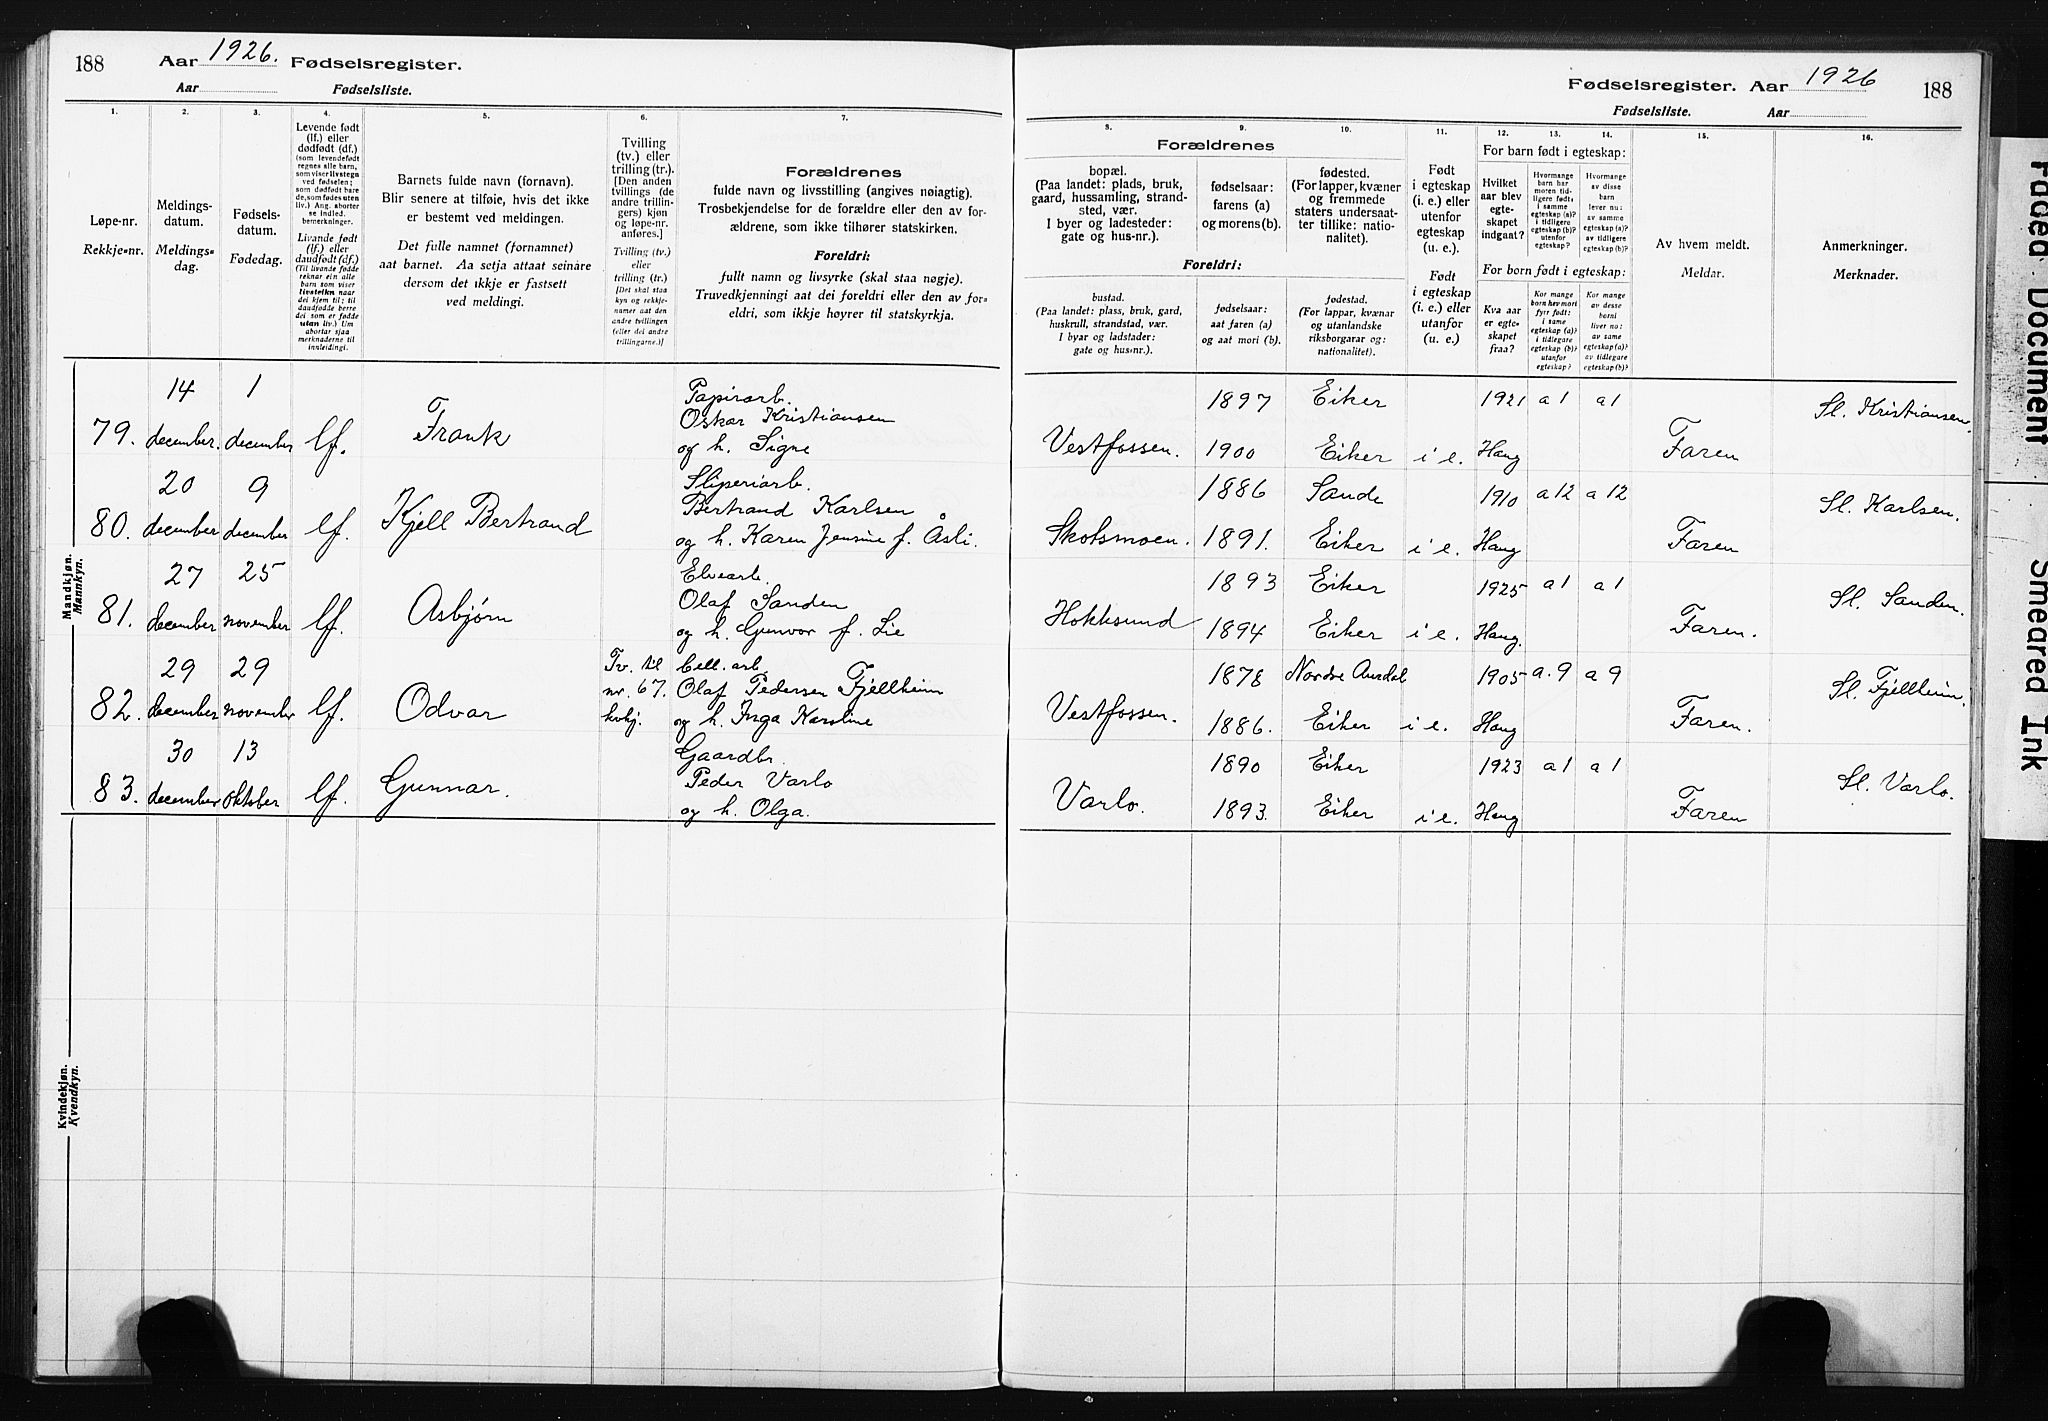 188 Aar 1926. Fødselsregister.
Aar Fødselsliste.
1. 2. 3. 4. 5. 6. 7.
Løpe-nr.
Rekkje-nr.
Meldings-
datum.
Meldings-
dag.
Fødsels-
datum.
Fødedag.
Levende født
(lf.) eller
dødfødt (df.)
(som levendefødt
regnes alle barn,
som viser livstegn
ved fødselen;
som dødfødt bare
de, som fødes uten
liv.) Ang. aborter
se indled.
bemerkninger.
Livande født
(lf.) eller
daudfødt (df.)
(Til livande fødde
reknar ein alle
barn som viser
livsteikn naar
dei kjem til; til
daudfødde berre
dei som er fødde
utan liv.) Um
abortar sjaa
merknaderne til
innleidingi.
Barnets fulde navn (fornavn).
Blir senere at tilføie, hvis det ikke
er bestemt ved meldingen.
Det fulle namnet (fornamnet)
aat barnet. Aa setja attaat seinare
dersom det ikkje er fastsett
ved meldingi.
Tvilling
(tv.) eller
trilling (tr.).
[Den anden
tvillings (de
andre trillin-
gers) kjøn
og løpe-nr.
anføres.]
Tvilling (tv.)
eller
trilling (tr.)
[Det skal staa
kyn og rekkje-
numer aat den
andre tvillingen
(eller dei andre
trillingarne.)]
Forældrenes
fulde navn og livsstilling (angives nøiagtig).
Trosbekjendelse for de forældre eller den av for-
ældrene, som ikke tilhører statskirken.
Foreldri:
fullt namn og livsyrke (skal staa nøgje).
Truvedkjenningi aat dei foreldri eller den av for-
eldri, som ikkje høyrer til statskyrkja.
Mandkjøn.
Mannkyn.
79. 14 december. 1 december lf. Frank
Papirarb.
Oskar Kristiansen
og h. Signe
80. 20 december 9 december lf. Kjell Bertrand
Sliperiarb.
Bertrand Karlsen
og h. Karen Jensine f. Åsli.
81. 27 december 25 november lf. Asbjørn
Elvearb.
Olaf Sanden
og h. Gunvor f. Lie
82. 29 december 29 november lf. Odvar
Tv. til
nr. 67.
kvkj.
Cell. arb.
Olaf Pedersen Fjellheim
og h. Inga Karoline
83. 30 december 13 oktober lf. Gunnar.
Gaardbr.
Peder Varlo
og h. Olga.
Kvindekjøn.
Kvendkyn.
Fødselsregister. Aar 1926 188
Fødselsliste. Aar
8. 9. 10. 11. 12. 13. 14. 15. 16.
Forældrenes
bopæl.
(Paa landet: plads, bruk,
gaard, hussamling, strand-
sted, vær.
I byer og ladesteder:
gate og hus-nr.).
fødselsaar:
farens (a)
og morens (b).
fødested.
(For lapper, kvæner
og fremmede
staters undersaat-
ter tillike: natio-
nalitet).
Foreldri:
bustad.
(Paa landet: plass, bruk, gard,
huskrull, strandstad, vær.
I byar og ladstader:
gate og hus-nr.).
fødselsaar:
aat faren (a)
og aat mori (b).
fødestad.
(For lappar, kvænar
og utanlandske
riksborgarar og:
nationalitet).
Født
i egteskap
(i. e.) eller
utenfor
egteskap
(u. e.).
Født
i egteskap
(i. e.) eller
utanfor
(u. e.)
For barn født i egteskap:
Hvilket
aar blev
egte-
skapet
indgaat?
Hvormange
barn har
moren tid-
ligere født:
i samme
egteskap (a)?
i tidligere
egteskap (b)?
utenfor
egteskap?
Hvormange
av disse
barn
lever nu:
av samme
egteskap (a)?
av tidligere
egteskap (b)?
For born født i egteskap:
Kva aar
er egte-
skapet
fraa?
Kor mange
born hev mori
fyrr født:
i same
egteskap (a)?
i tidlegare
egteskap (b)?
utanfor
egteskap?
Kor mange
av disse
borni
liver no:
av same
egteskap (a)?
av tidlegare
egteskap (b)?
Av hvem meldt.
Meldar.
Anmerkninger.
Merknader.
1897 Eiker 1921 a 1 a 1 Sl. Kristiansen.
Vestfossen. 1900 Eiker i e. Haug Faren
1886 Sande 1910 a 12 a 12 Sl. Karlsen.
Skotsmoen. 1891. Eiker i e. Haug Faren
1893 Eiker 1925 a 1 a 1 Sl. Sanden.
Hokksund 1894 Eiker i e. Haug. Faren.
1878 Nordre Aurdal 1905 a. 9 a 9 Sl. Fjellheim.
Vestfossen. 1886. Eiker i e. Haug Faren.
1890 Eiker 1923 a 1 a 1 Sl. Varlo.
Varlo. 1893. Eiker i e. Haug Faren
Faded Document
Smeared Ink